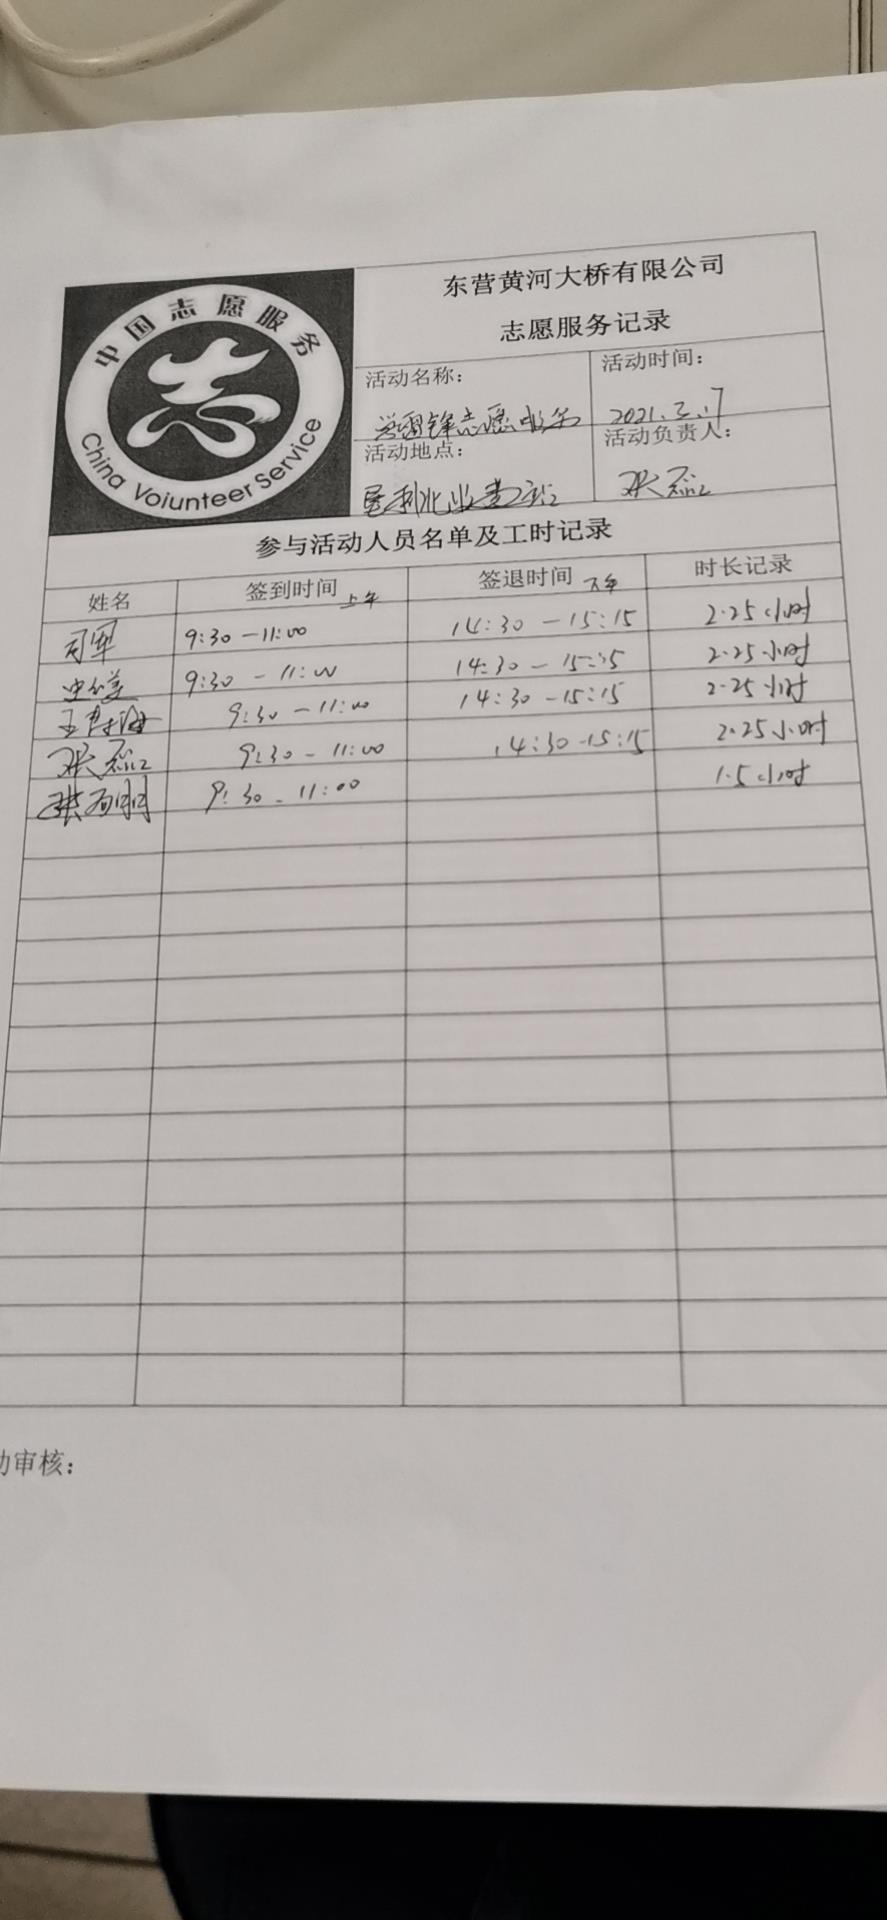 中国志愿服务
China Voiunteer Service
东营黄河大桥有限公司
志愿服务记录
活动名称：
学雷锋志愿服务
活动时间：
2021.3.17
活动地点：
垦利北收费站
活动负责人：
张磊
参与活动人员名单及工时记录
姓名 签到时间 上午 签退时间 下午 时长记录
司军 9:30-11:00 14:30-15:15 2.25小时
9:30-11:00 14:30-15:15 2.25小时
9:30-11:00 14:30-15:15 2.25小时
张磊 9:30-11:00 14:30-15:15 2.25小时
9:30-11:00 1.5小时
动审核：